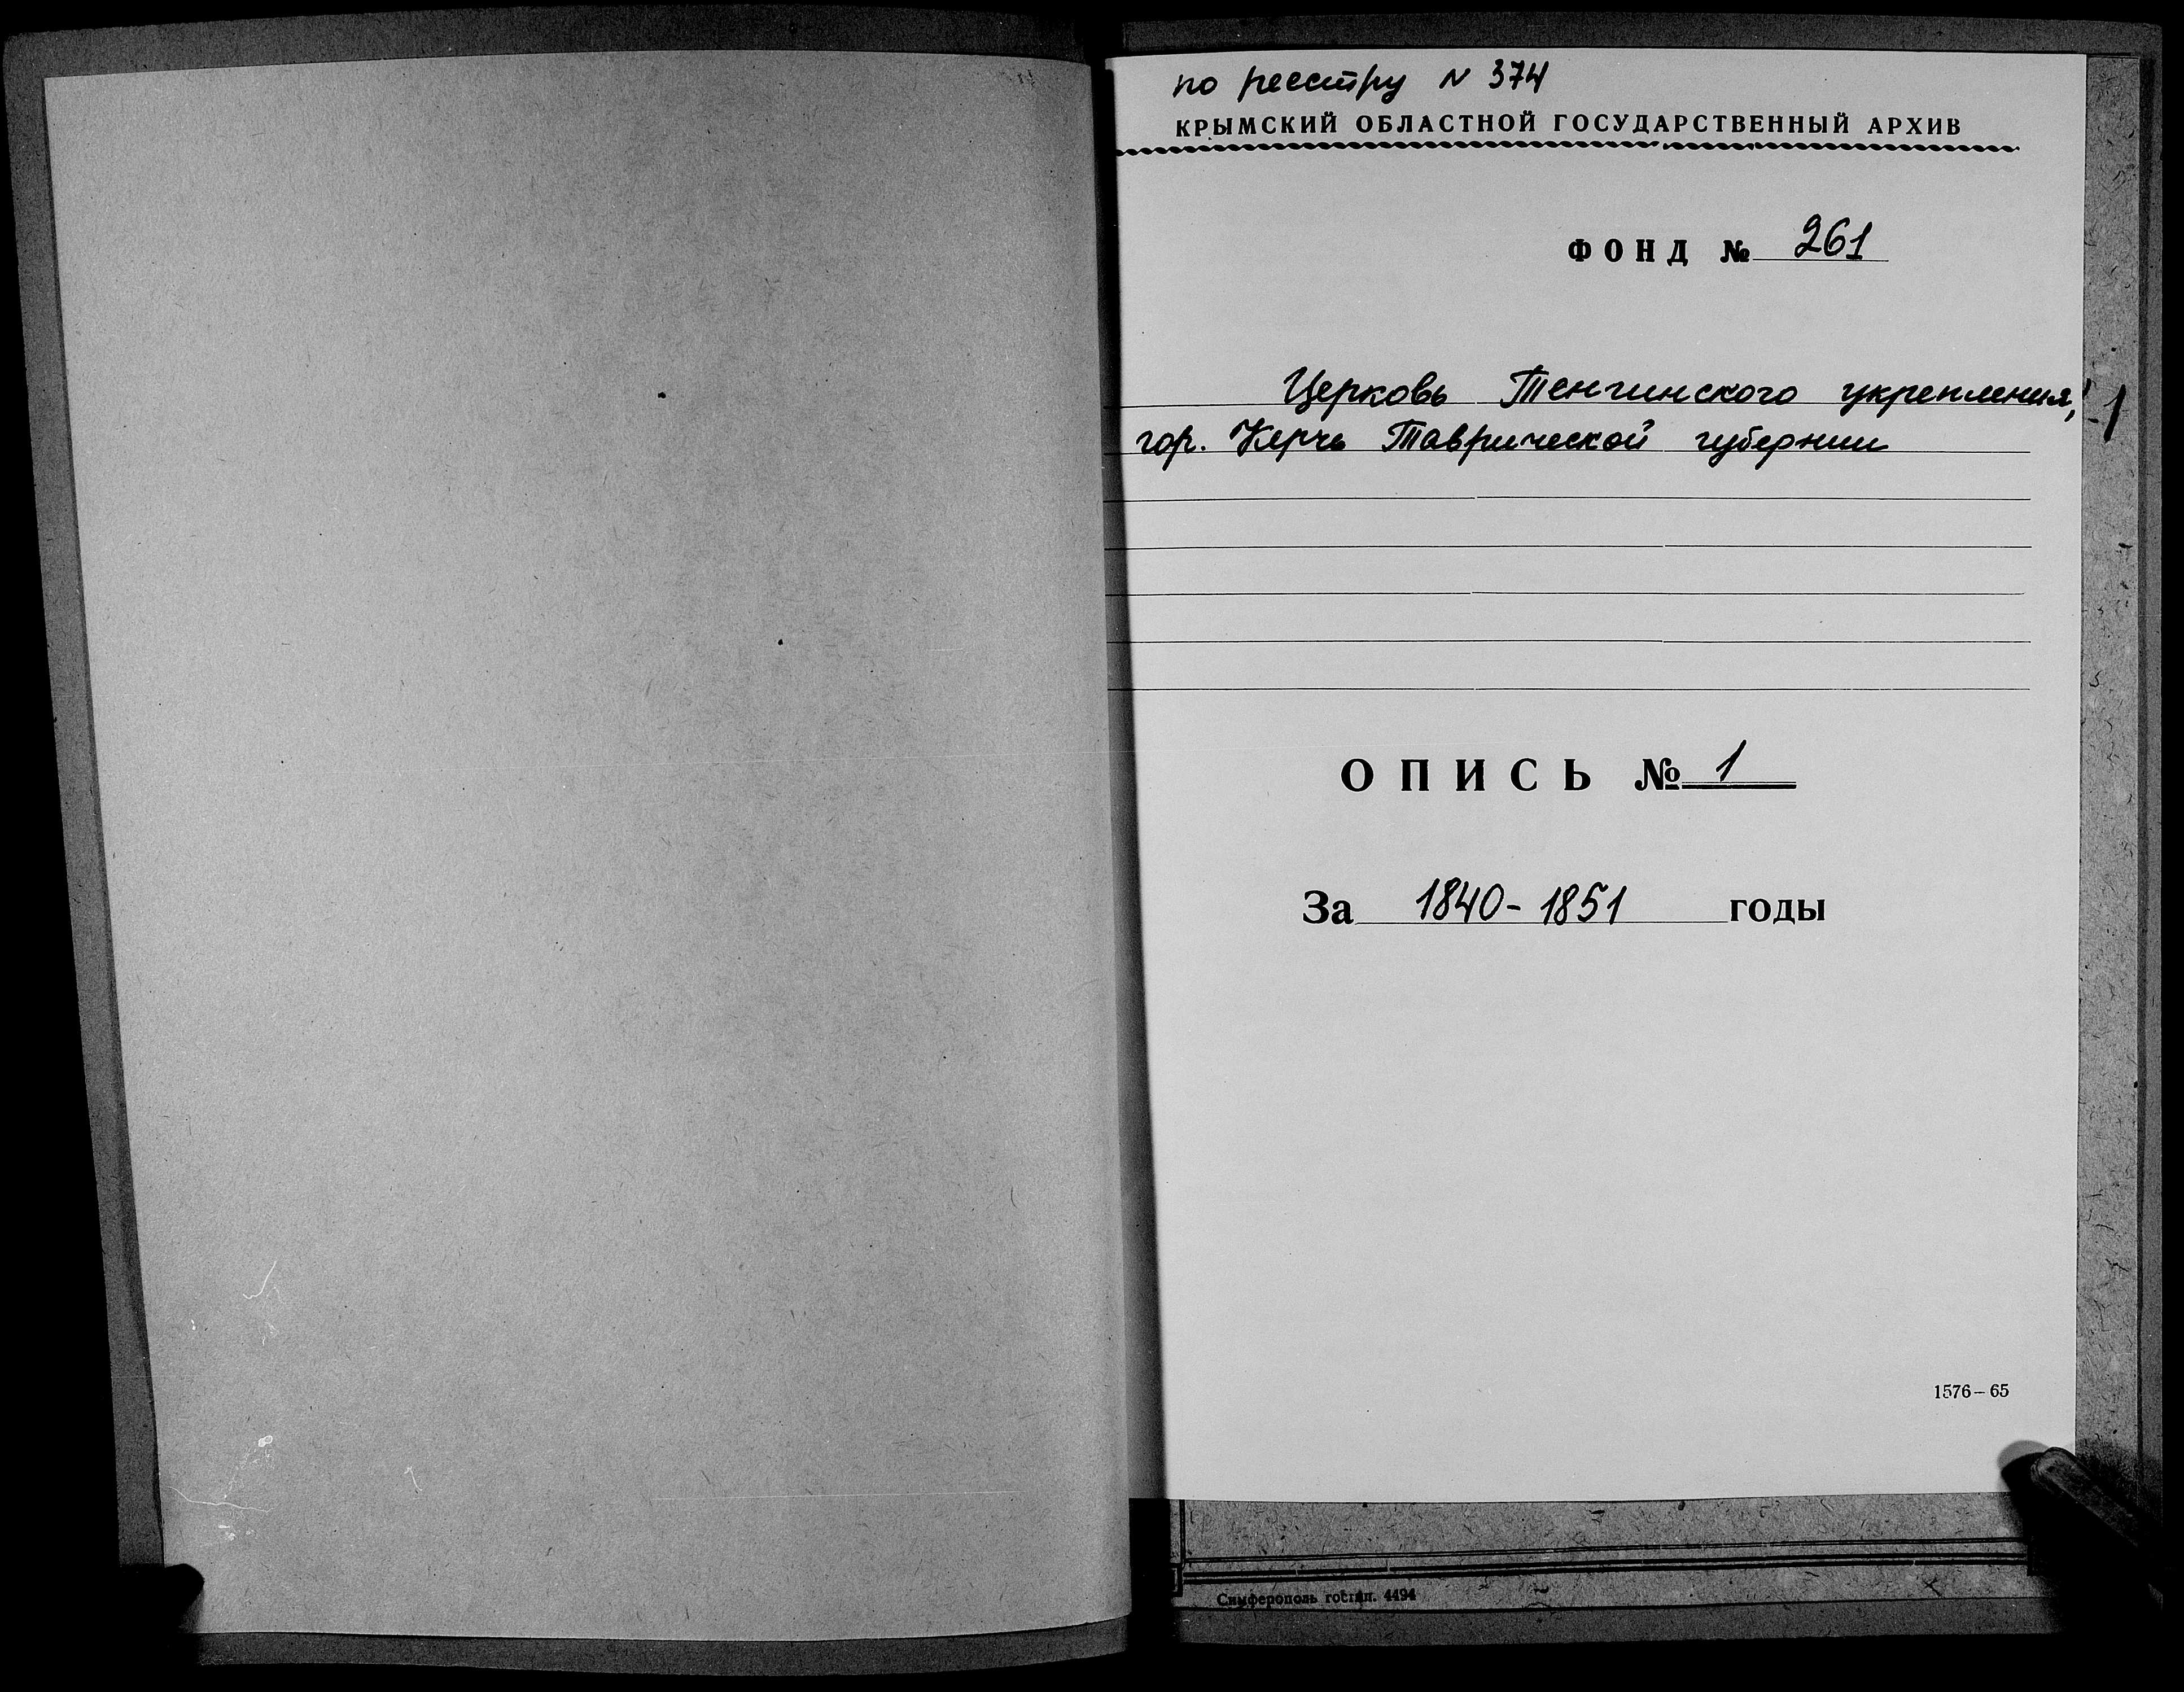 по реестру N 374
КРЫМСКИЙ ОБЛАСТНОЙ ГОСУДАРСТВЕННЫЙ АРХИВ
ФОНД № 261
Церковь Тенгинского укрепления,
гор. Керчь Таврической губернии
ОПИСЬ № 1
За 1840-1851 годы
1576-65
Симферополь гостип. 4494